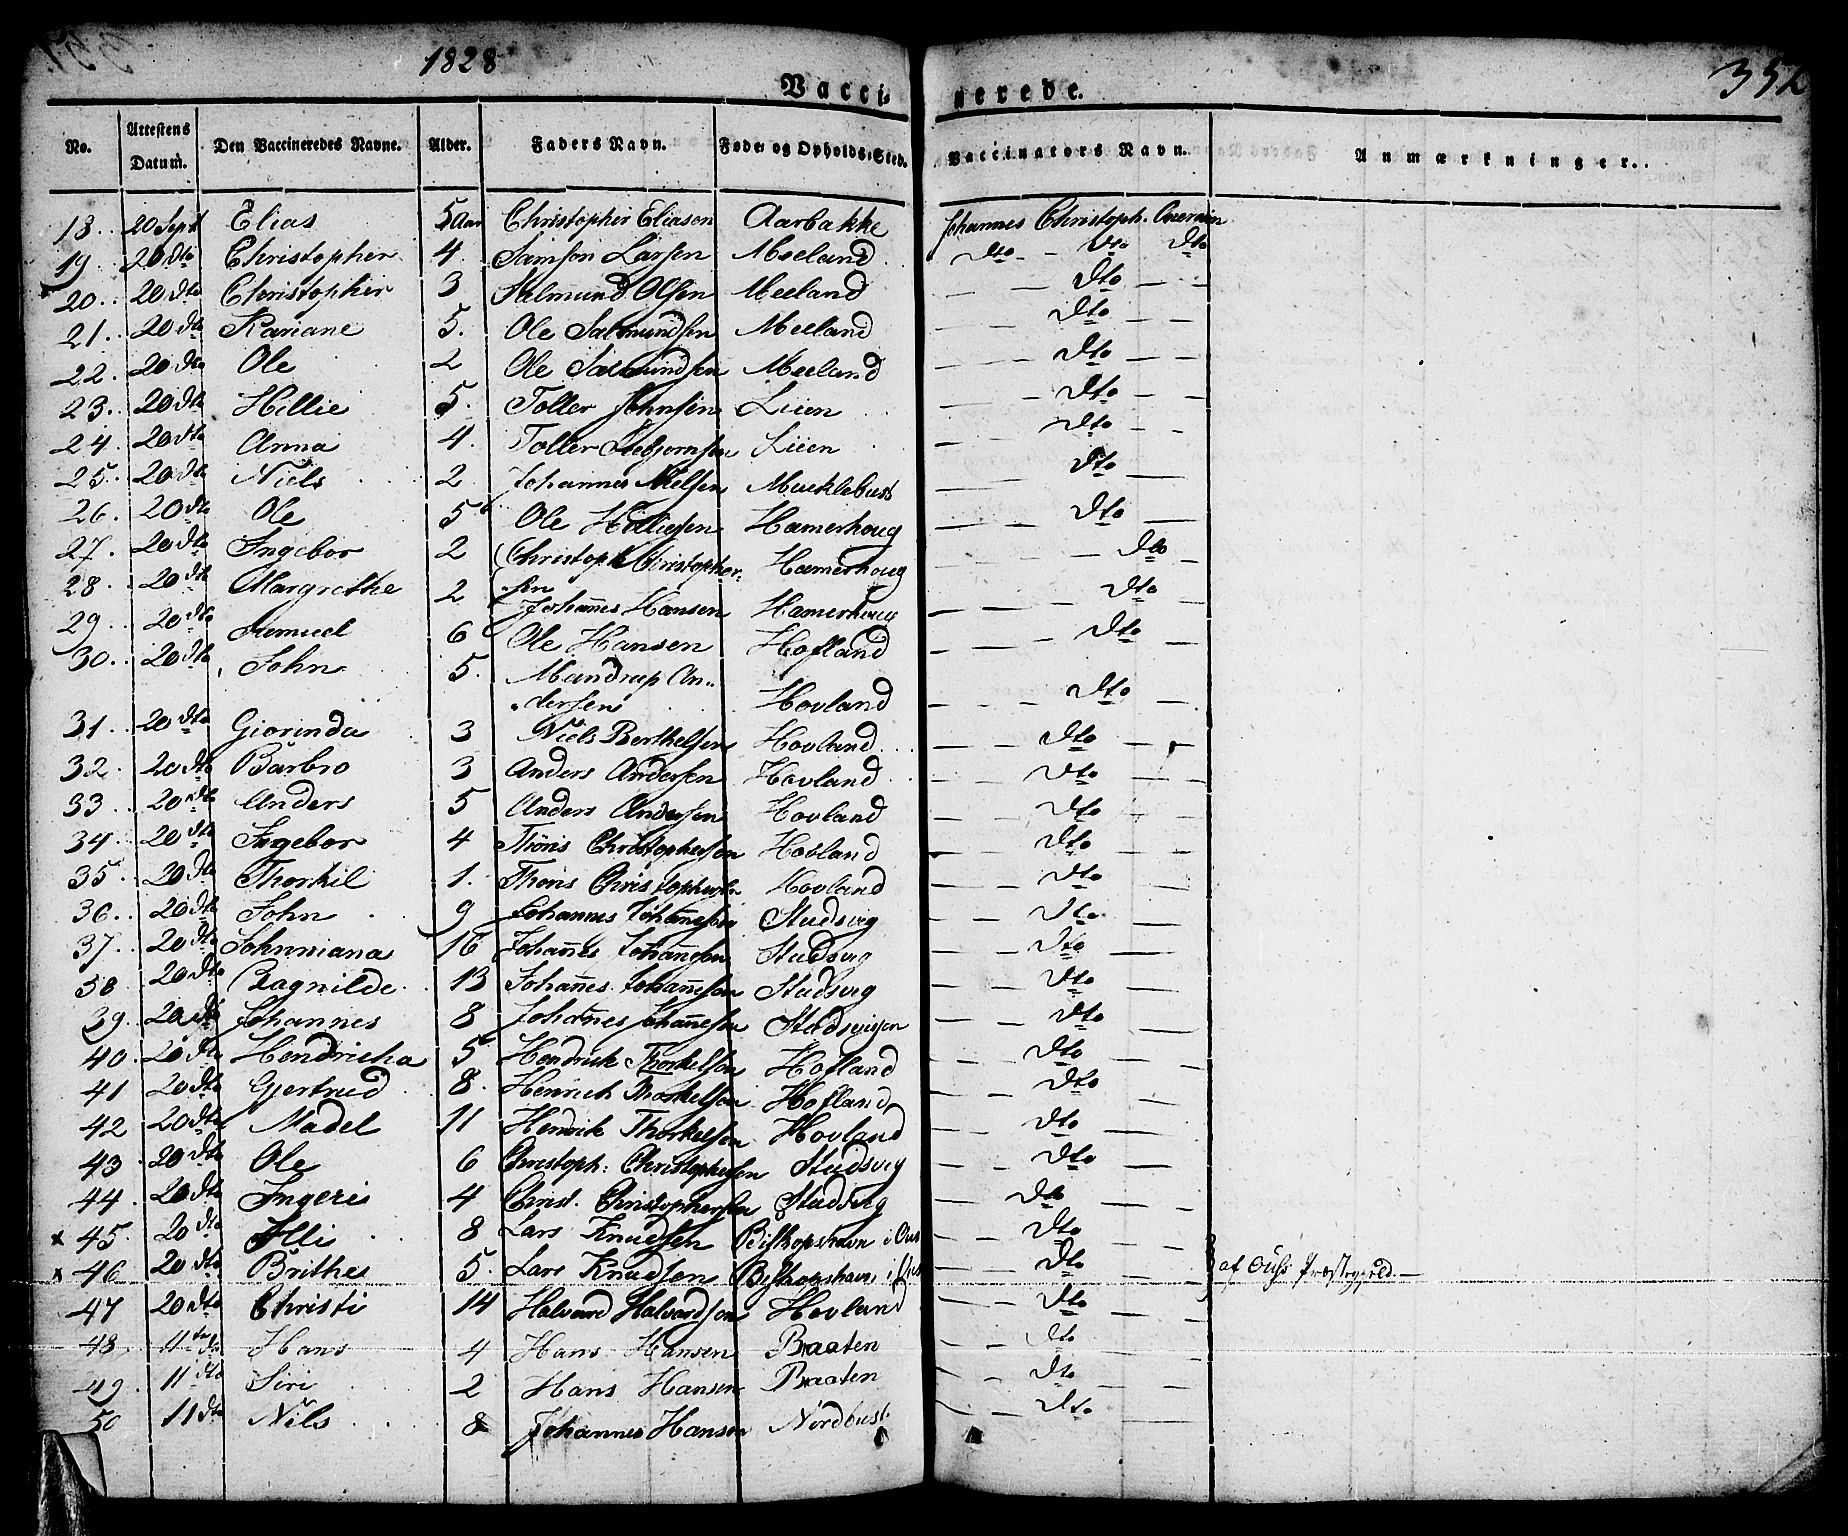 1828
352
Vaccinerede.
No. Attestens Datum. Den Vaccineredes Navne. Alder. Faders Navn. Føde- og Opholds-Sted. Vaccinators Navn. Anmærkninger.
18. 20 Sept Elias 5 Aar Christopher Eliasen Aarbakke Johannes Christoph.
19. 20 dto Christopher 4. Samson Larsen Meeland dto dto dto
20. 20 dto Christopher 3 Salmund Olsen Meeland — — dto — —
21. 20 dto Kariane 5. Ole Salmundsen Meeland — — dto — —
22. 20 dto Ole 2 Ole Salmundsen Meeland — — dto — —
23. 20 dto Hellie 5. Toller Johnsen Liien — — dto — —
24. 20 dto Anna 4. Toller Liien — — dto — —
25. 20 dto Niels 2 Johannes Nielsen Mucklebust — — dto —
26. 20 dto Ole 5 Ole Hilliesen Hamerhoug — — dto —
27. 20 dto Ingebor 2 Christoph Christopher- Hamerhoug — dto —
sen
28. 20 dto Margrethe 2 Johannes Hansen Hamerhoug — — — dto —
29. 20 dto Samuel 6 Ole Hansen Hofland — — — dto —
30. 20 dto John 5. Mandrup An-
dersen Hovland — — — dto —
31. 20 dto Giorinda 3 Niels Berthelsen Hovland — — dto — —
32. 20 dto Barbro 3 Anders Andersen Hovland — — dto — —
33. 20 dto Anders 5 Anders Andersen Hovland — — dto — —
34. 20 dto Ingebor 4 Thöris Christophersen Hovland — — dto — —
35. 20 dto Thorkil 1. Thöris Christophersen Hovland — — dto — —
36. 20 dto John 9 Johannes Johannesen Studsvig — — dto — —
37. 20 dto Johnniana 16 Johannes Johannesen Studsvig — — dto — —
38 20 dto Ragnilde 13 Johannes Johannesen Studsvig — — dto — —
39. 20 dto Johannes 8 Johannes Johannesen — — dto — —
40. 20 dto Hendricha 5 Hendrick Thorkelsen Hofland — — dto — —
41 20 dto Gjertrud 8. Henrich Thorkelsen Hofland — — dto — —
42 20 dto Madel 11 Hendrik Thorkelsen Hovland — — dto — —
43 20 dto Ole 6 Christoph: Christophersen Studsvig — — dto — —
44. 20 dto Ingeris 4 Christ. Christophersen Studsvig — — dto — —
x 45. 20 dto Illi 8 Lars Knudsen Biskopshavn i — — dto — —
x 46 20 dto Brithe 5. Lars Knudsen Biskopshavn i — — dto — — af Præstegjeld.—
47 20 dto Christi 14 Halvard Halvardson Hovland — — dto — —
48. 11 dto Hans 4 Hans Hansen Braaten — — dto — —
49. 11 dto Siri 2 Hans Hansen Braaten — — dto — —
50 11 dto Nils 8 Johannes Hansen Nordbust — — dto — —